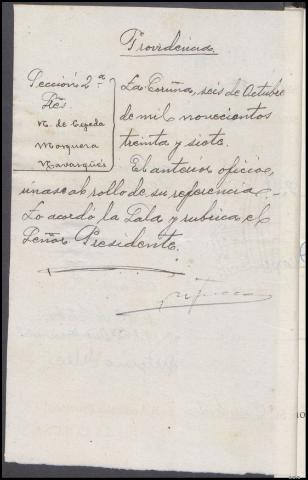 Providencia
Sección 2ª
Sres.
N. de Cepeda
Mosquera
Navarqués
La Coruña, seis de Octubre
de mil novecientos
treinta y siete.
El anterior oficio,
unase al rollo de su referencia.-
Lo acordó la Sala y rubrica el
Señor Presidente.